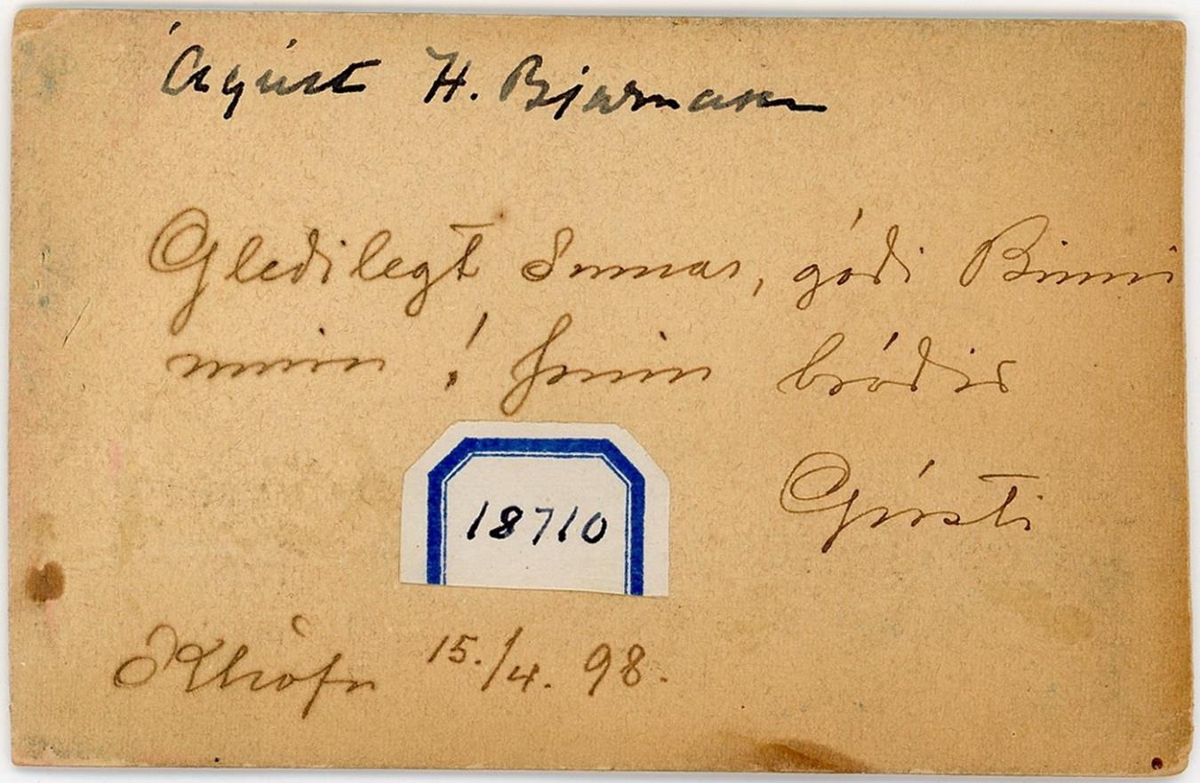 Ágúst H. Bjarnason
Gleðilegt Sumar, góði Binni
minn! Þinn bróðir
Gústi
18710
Khöfn 15./4. 98.